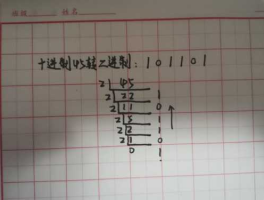 姓名
十进制45转二进制: 101101
2 45
2 22 1
2 11 0
2 5 1
2 2 1
2 1 0
0 1